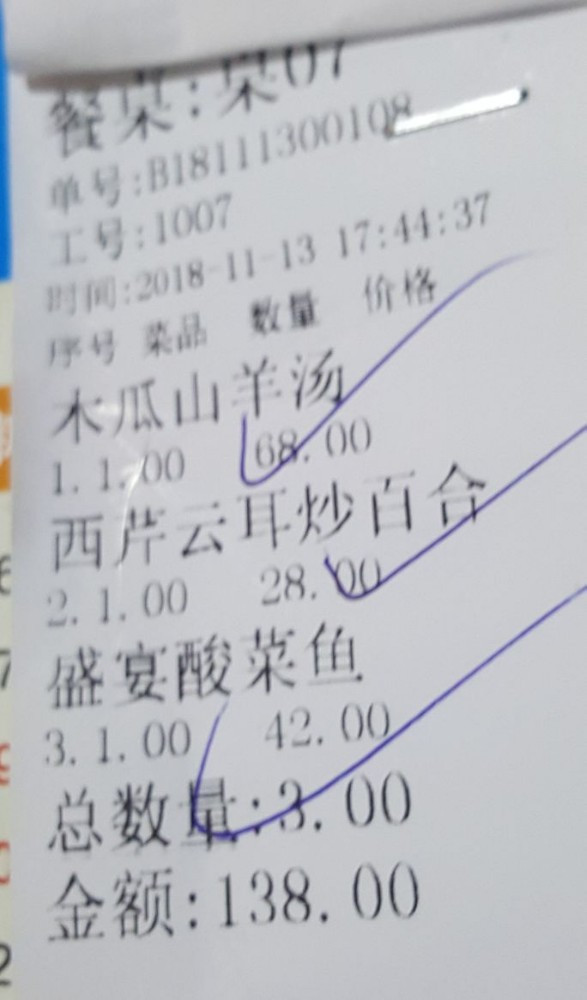 餐桌:桌07
单号:B18111300108
工号:1007
时间:2018-11-13 17:44:37
序号 菜品 数量 价格
木瓜山羊汤
1. 1.00 68.00
西芹云耳炒百合
2. 1.00 28.00
盛宴酸菜鱼
3. 1.00 42.00
总数量:3.00
金额:138.00